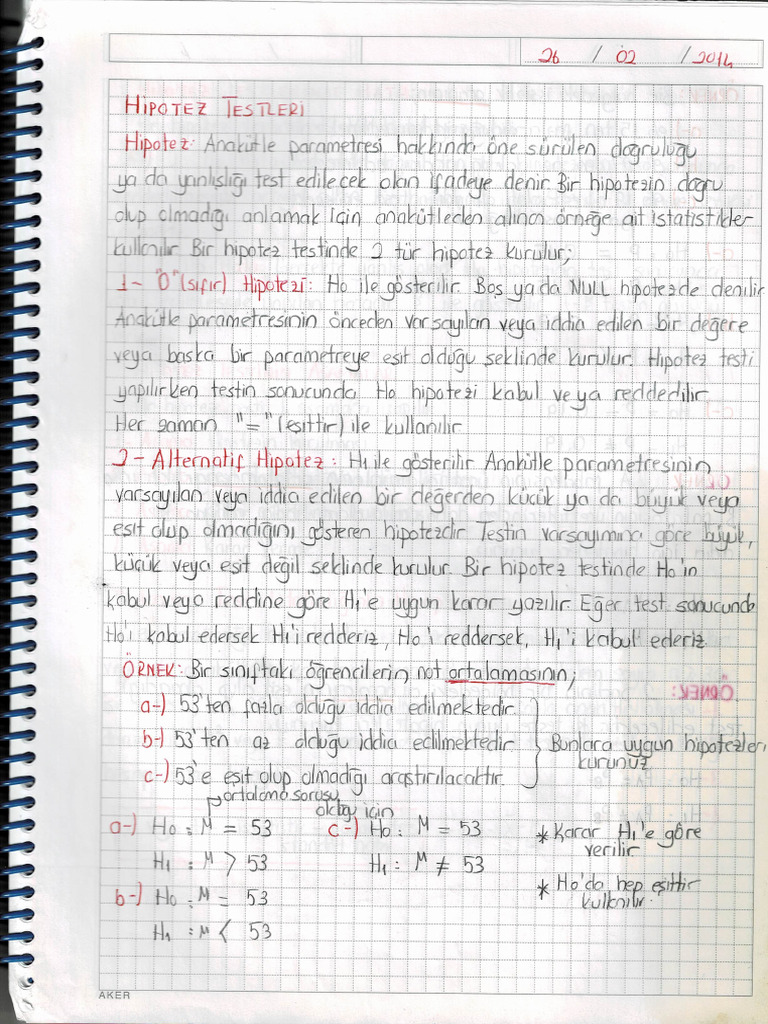 26 / 02 / 2014
HİPOTEZ TESTLERİ
Hipotez: Anakütle parametresi hakkında öne sürülen doğruluğu
ya da yanlışlığı test edilecek olan ifadeye denir. Bir hipotezin doğru
olup olmadığı anlamak için anakütleden alınan örneğe ait istatistikler
kullanılır. Bir hipotez testinde 2 tür hipotez kurulur;
1- "0" (sıfır) Hipotezi: H0 ile gösterilir. Boş ya da NULL hipotezde denilir.
Anakütle parametresinin önceden varsayılan veya iddia edilen bir değere
veya baska bir parametreye esit olduğu seklinde kurulur. Hipotez testi
yapılırken testin sonucunda H0 hipotezi kabul veya reddedilir.
Her zaman "=" (eşittir) ile kullanılır.
2- Alternatif Hipotez: H1 ile gösterilir. Anakütle parametresinin
varsayılan veya iddia edilen bir değerden küçük ya da büyük veya
esit olup olmadığını gösteren hipotezdir. Testin varsayımına göre büyük,
küçük veya esit değil seklinde kurulur. Bir hipotez testinde H0'ın
kabul veya reddine göre H1'e uygun karar yazılır. Eğer test sonucunda
H0'ı kabul edersek H1'i redderiz, H0'ı reddersek, H1'i kabul ederiz.
ÖRNEK: Bir sınıftaki öğrencilerin not ortalamasının;
a-) 53'ten fazla olduğu iddia edilmektedir.
b-) 53'ten az olduğu iddia edilmektedir.
c-) 53'e eşit olup olmadığı araştırılacaktır.
Bunlara uygun hipotezleri
kurunuz
ortalama sorusu
olduğu için
a-) H0 : M = 53
H1 : M > 53
b-) H0 : M = 53
H1 : M < 53
c-) H0 : M = 53
H1 : M ≠ 53
* Karar H1'e göre
verilir.
* H0'da hep eşittir
kullanılır.
AKER